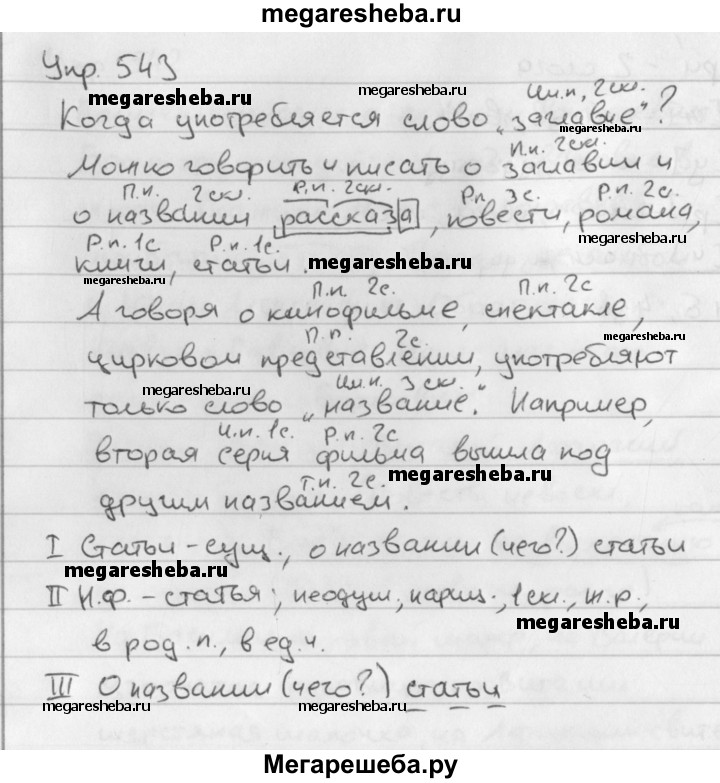 megaresheba.ru
Упр. 543
megaresheba.ru
Им.п, 2ск.
megaresheba.ru
Когда употребляется слово „заглавие“?
megaresheba.ru
П.п. 2ск.
Можно говорить и писать о заглавии и
П.п. 2ск. Р.п. 2ск. Р.п. 3с. Р.п. 2с.
о названии рассказа, повести, романа,
megaresheba.ru
Р.п. 1с Р.п. 1с.
книги, статьи.
megaresheba.ru
П.п. 2с. П.п. 2с
А говоря о кинофильме, спектакле,
megaresheba.ru
П.п. 2с.
цирковом представлении, употребляют
megaresheba.ru
Им.п. 3ск.
только слово „название“. Например,
И.п. 1с. Р.п. 2с
вторая серия фильма вышла под
megaresheba.ru
Т.п. 2с.
другим названием.
I Статьи – сущ., о названии (чего?) статьи
megaresheba.ru
II Н.ф. – статья; неодуш, нариц., 1ск., ж.р.,
megaresheba.ru
в род.п., в ед.ч.
III О названии (чего?) статьи
megaresheba.ru
megaresheba.ru
Мегарешеба.ру